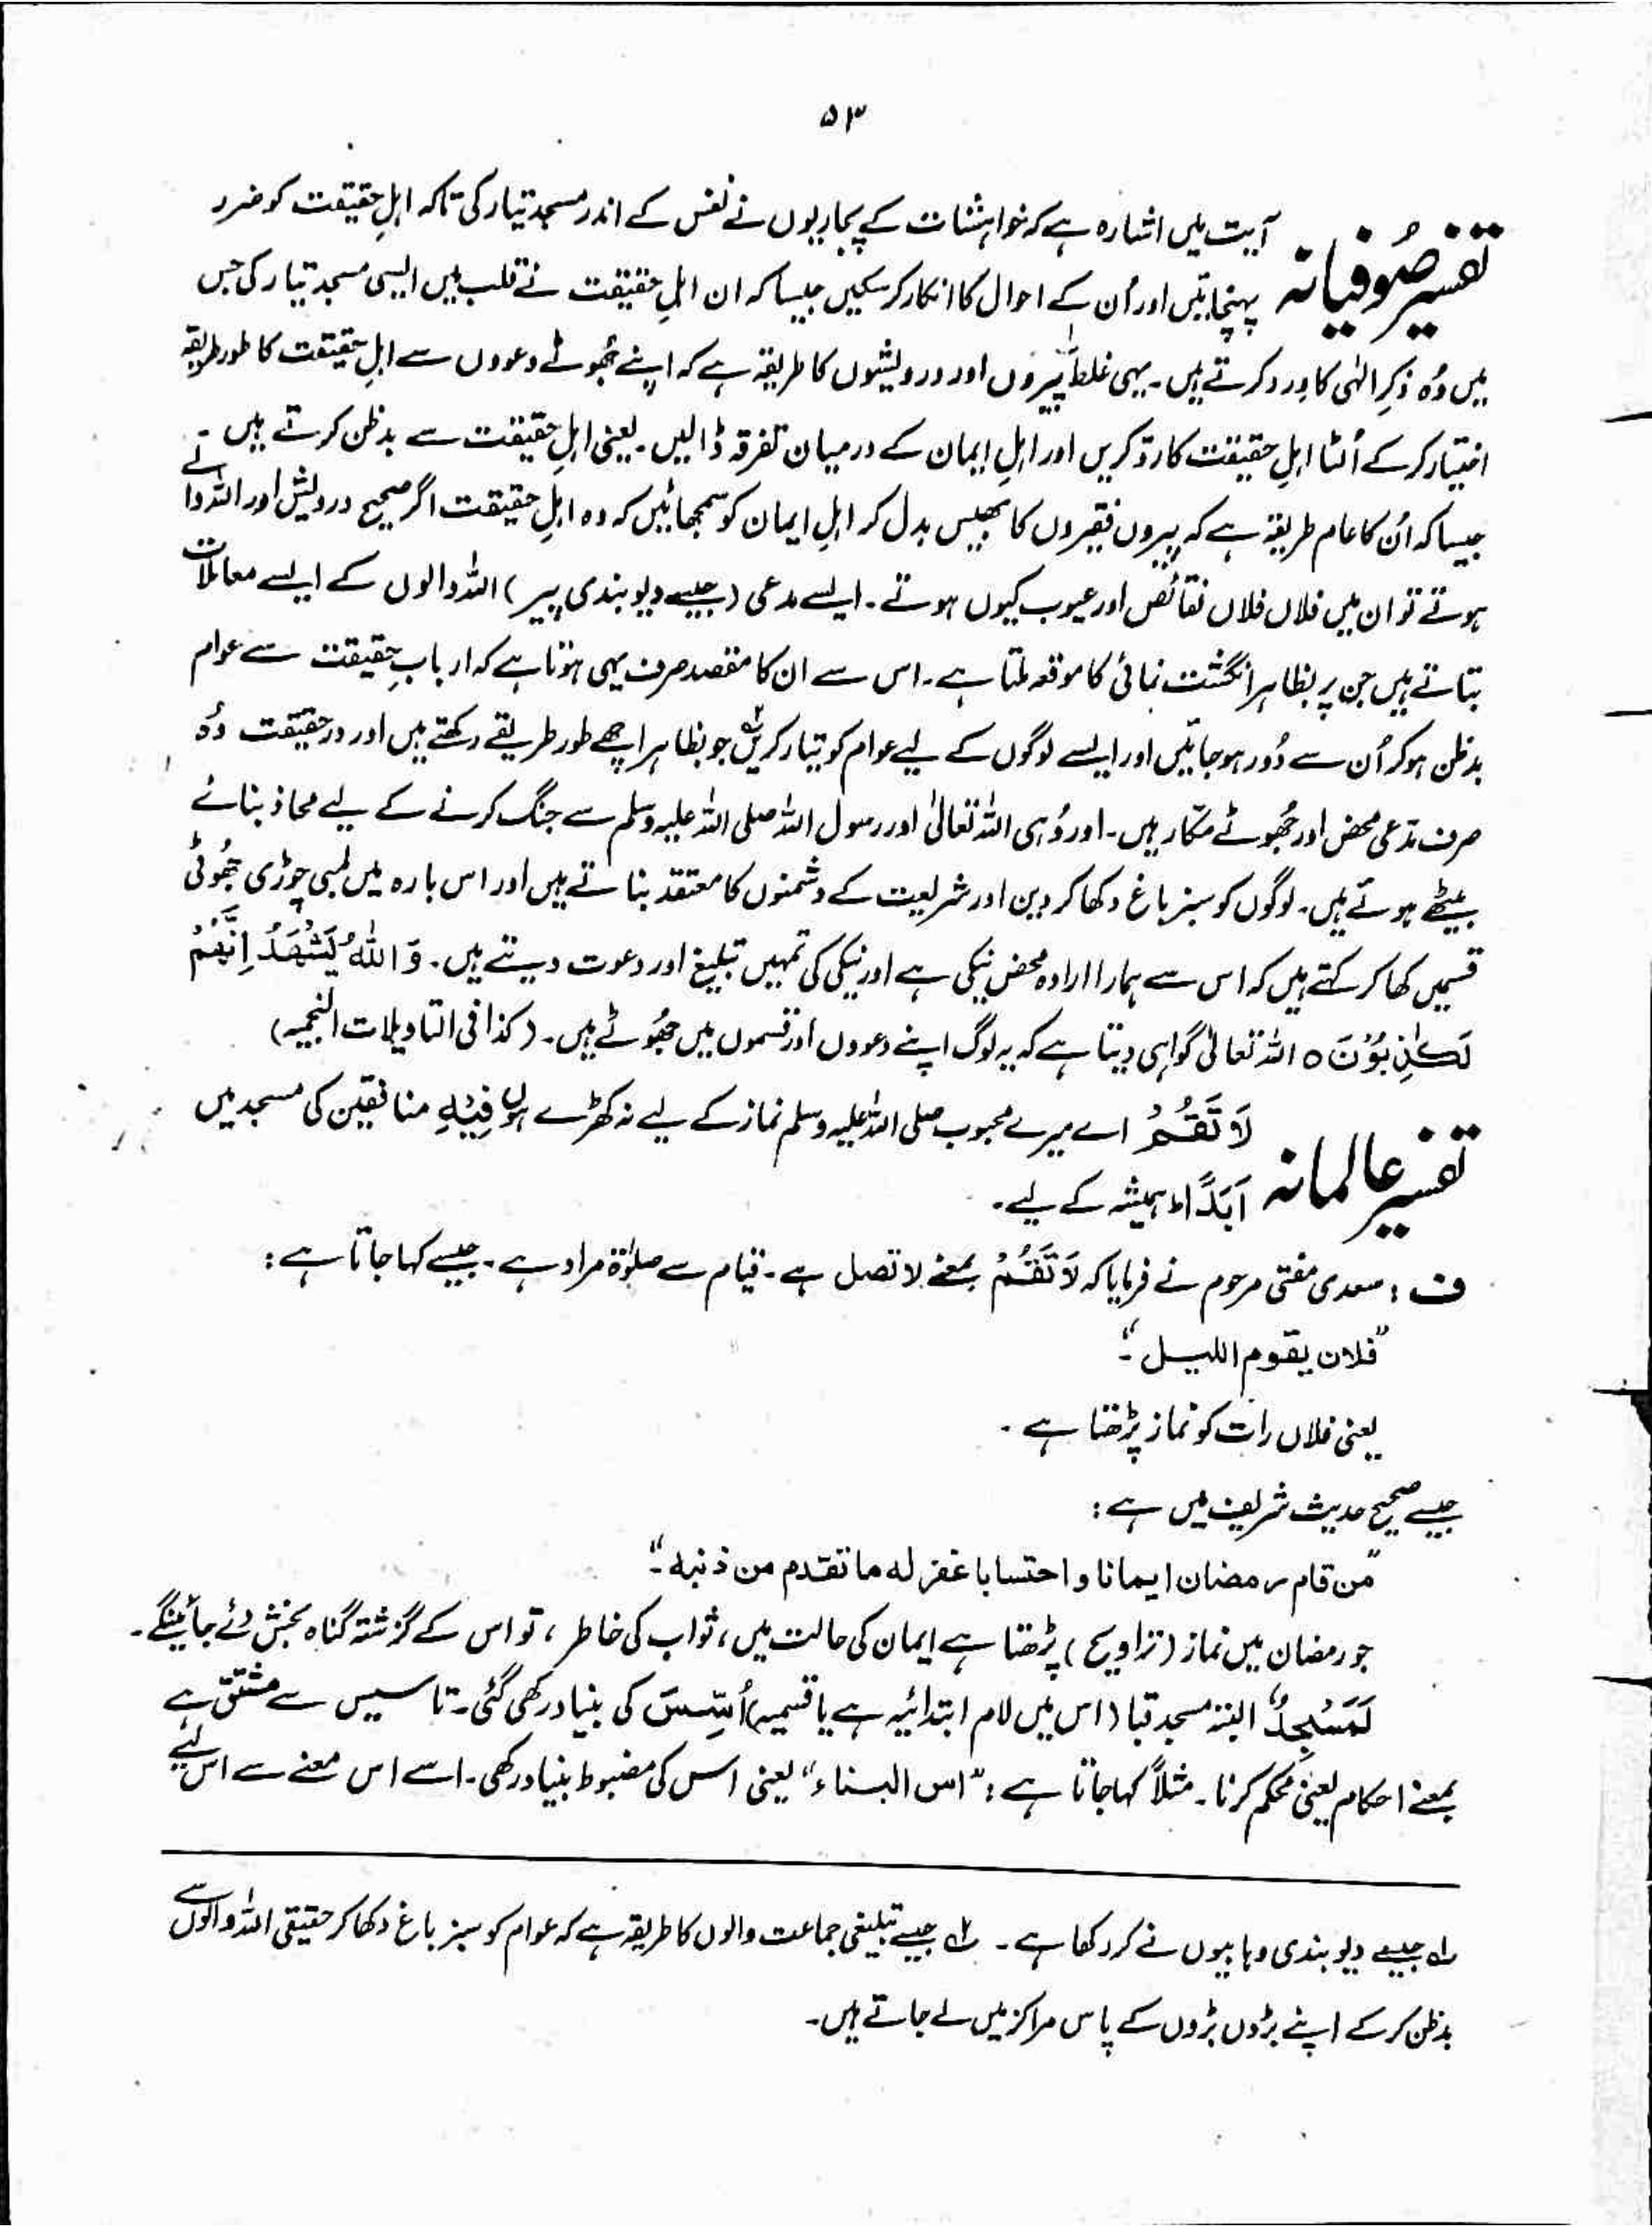 ۵۳
تفسیر صُوفیانہ آیت میں اشارہ ہے کہ خواہشات کے پجاریوں نے نفس کے اندر مسجد تیار کی تاکہ اہلِ حقیقت کو ضرر
پہنچائیں اور اُن کے احوال کا انکار کر سکیں جیسا کہ ان اہلِ حقیقت نے قلب میں ایسی مسجد تیار کی جس
میں وُہ ذکرِ الٰہی کا وِرد کرتے ہیں۔ یہی غلط پیروں اور درویشوں کا طریقہ ہے کہ اپنے جُھوٹے دعووں سے اہلِ حقیقت کا طور طریقہ
اختیار کر کے اُلٹا اہلِ حقیقت کا ردّ کریں اور اہلِ ایمان کے درمیان تفرقہ ڈالیں۔ یعنی اہلِ حقیقت سے بدظن کرتے ہیں۔
جیسا کہ اُن کا عام طریقہ ہے کہ پیروں فقیروں کا بھیس بدل کر اہلِ ایمان کو سمجھائیں کہ وہ اہلِ حقیقت اگر صحیح درویش اور اللہ والے
ہوتے تو ان میں فلاں فلاں نقائص اور عیوب کیوں ہوتے۔ ایسے مدعی (جیسے دیوبندی پیر) اللہ والوں کے ایسے معاملات
بتاتے ہیں جن پر بظاہر انگشت نمائی کا موقعہ ملتا ہے۔ اس سے ان کا مقصد صرف یہی ہوتا ہے کہ اربابِ حقیقت سے عوام
بدظن ہو کر اُن سے دُور ہو جائیں اور ایسے لوگوں کے لیے عوام کو تیار کریں جو بظاہر اچھے طور طریقے رکھتے ہیں اور درحقیقت وُہ
صرف مدعی محض اور جُھوٹے مکّار ہیں۔ اور وُہی اللہ تعالیٰ اور رسول اللہ صلی اللہ علیہ وسلم سے جنگ کرنے کے لیے محاذ بنائے
بیٹھے ہوئے ہیں۔ لوگوں کو سبز باغ دکھا کر دین اور شریعت کے دشمنوں کا معتقد بناتے ہیں اور اس بارہ میں لمبی چوڑی جُھوٹی
قسمیں کھا کر کہتے ہیں کہ اس سے ہمارا ارادہ محض نیکی ہے اور نیکی کی تمہیں تبلیغ اور دعوت دیتے ہیں۔ وَاللّٰہُ یَشْھَدُ اِنَّھُمْ
لَکٰذِبُوْنَ ہ اللہ تعالیٰ گواہی دیتا ہے کہ یہ لوگ اپنے دعووں اور قسموں میں جھُوٹے ہیں۔ (کذا فی التاویلات النجمیہ)
تفسیر عالمانہ لَا تَقُمْ اے میرے محبوب صلی اللہ علیہ وسلم نماز کے لیے نہ کھڑے ہوں فِیْہِ منافقین کی مسجد میں
اَبَدًاط ہمیشہ کے لیے۔
ف : سعدی مفتی مرحوم نے فرمایا کہ لَا تَقُمْ بمعنے لا تصل ہے۔ قیام سے صلوٰۃ مراد ہے۔ جیسے کہا جاتا ہے :
"فلان یقوم اللیل"۔
یعنی فلاں رات کو نماز پڑھتا ہے۔
جیسے صحیح حدیث شریف میں ہے :
"من قام رمضان ایمانا و احتسابا غفر له ما تقدم من ذنبه"۔
جو رمضان میں نماز (تراویح) پڑھتا ہے ایمان کی حالت میں، ثواب کی خاطر، تو اس کے گزشتہ گناہ بخش دئے جائینگے۔
لَمَسْجِدٌ البتہ مسجد قبا (اس میں لام ابتدائیہ ہے یا قسمیہ) اُسِّسَ کی بنیاد رکھی گئی۔ تاسیس سے مشتق ہے
بمعنے احکام یعنی محکم کرنا۔ مثلاً کہا جاتا ہے : "اس البناء" یعنی اس کی مضبوط بنیاد رکھی۔ اسے اس معنے سے اس لیے
۱ے جیسے دیوبندی وہابیوں نے کر رکھا ہے۔ ۲ے جیسے تبلیغی جماعت والوں کا طریقہ ہے کہ عوام کو سبز باغ دکھا کر حقیقی اللہ والوں سے
بدظن کر کے اپنے بڑوں بڑوں کے پاس مراکز میں لے جاتے ہیں۔